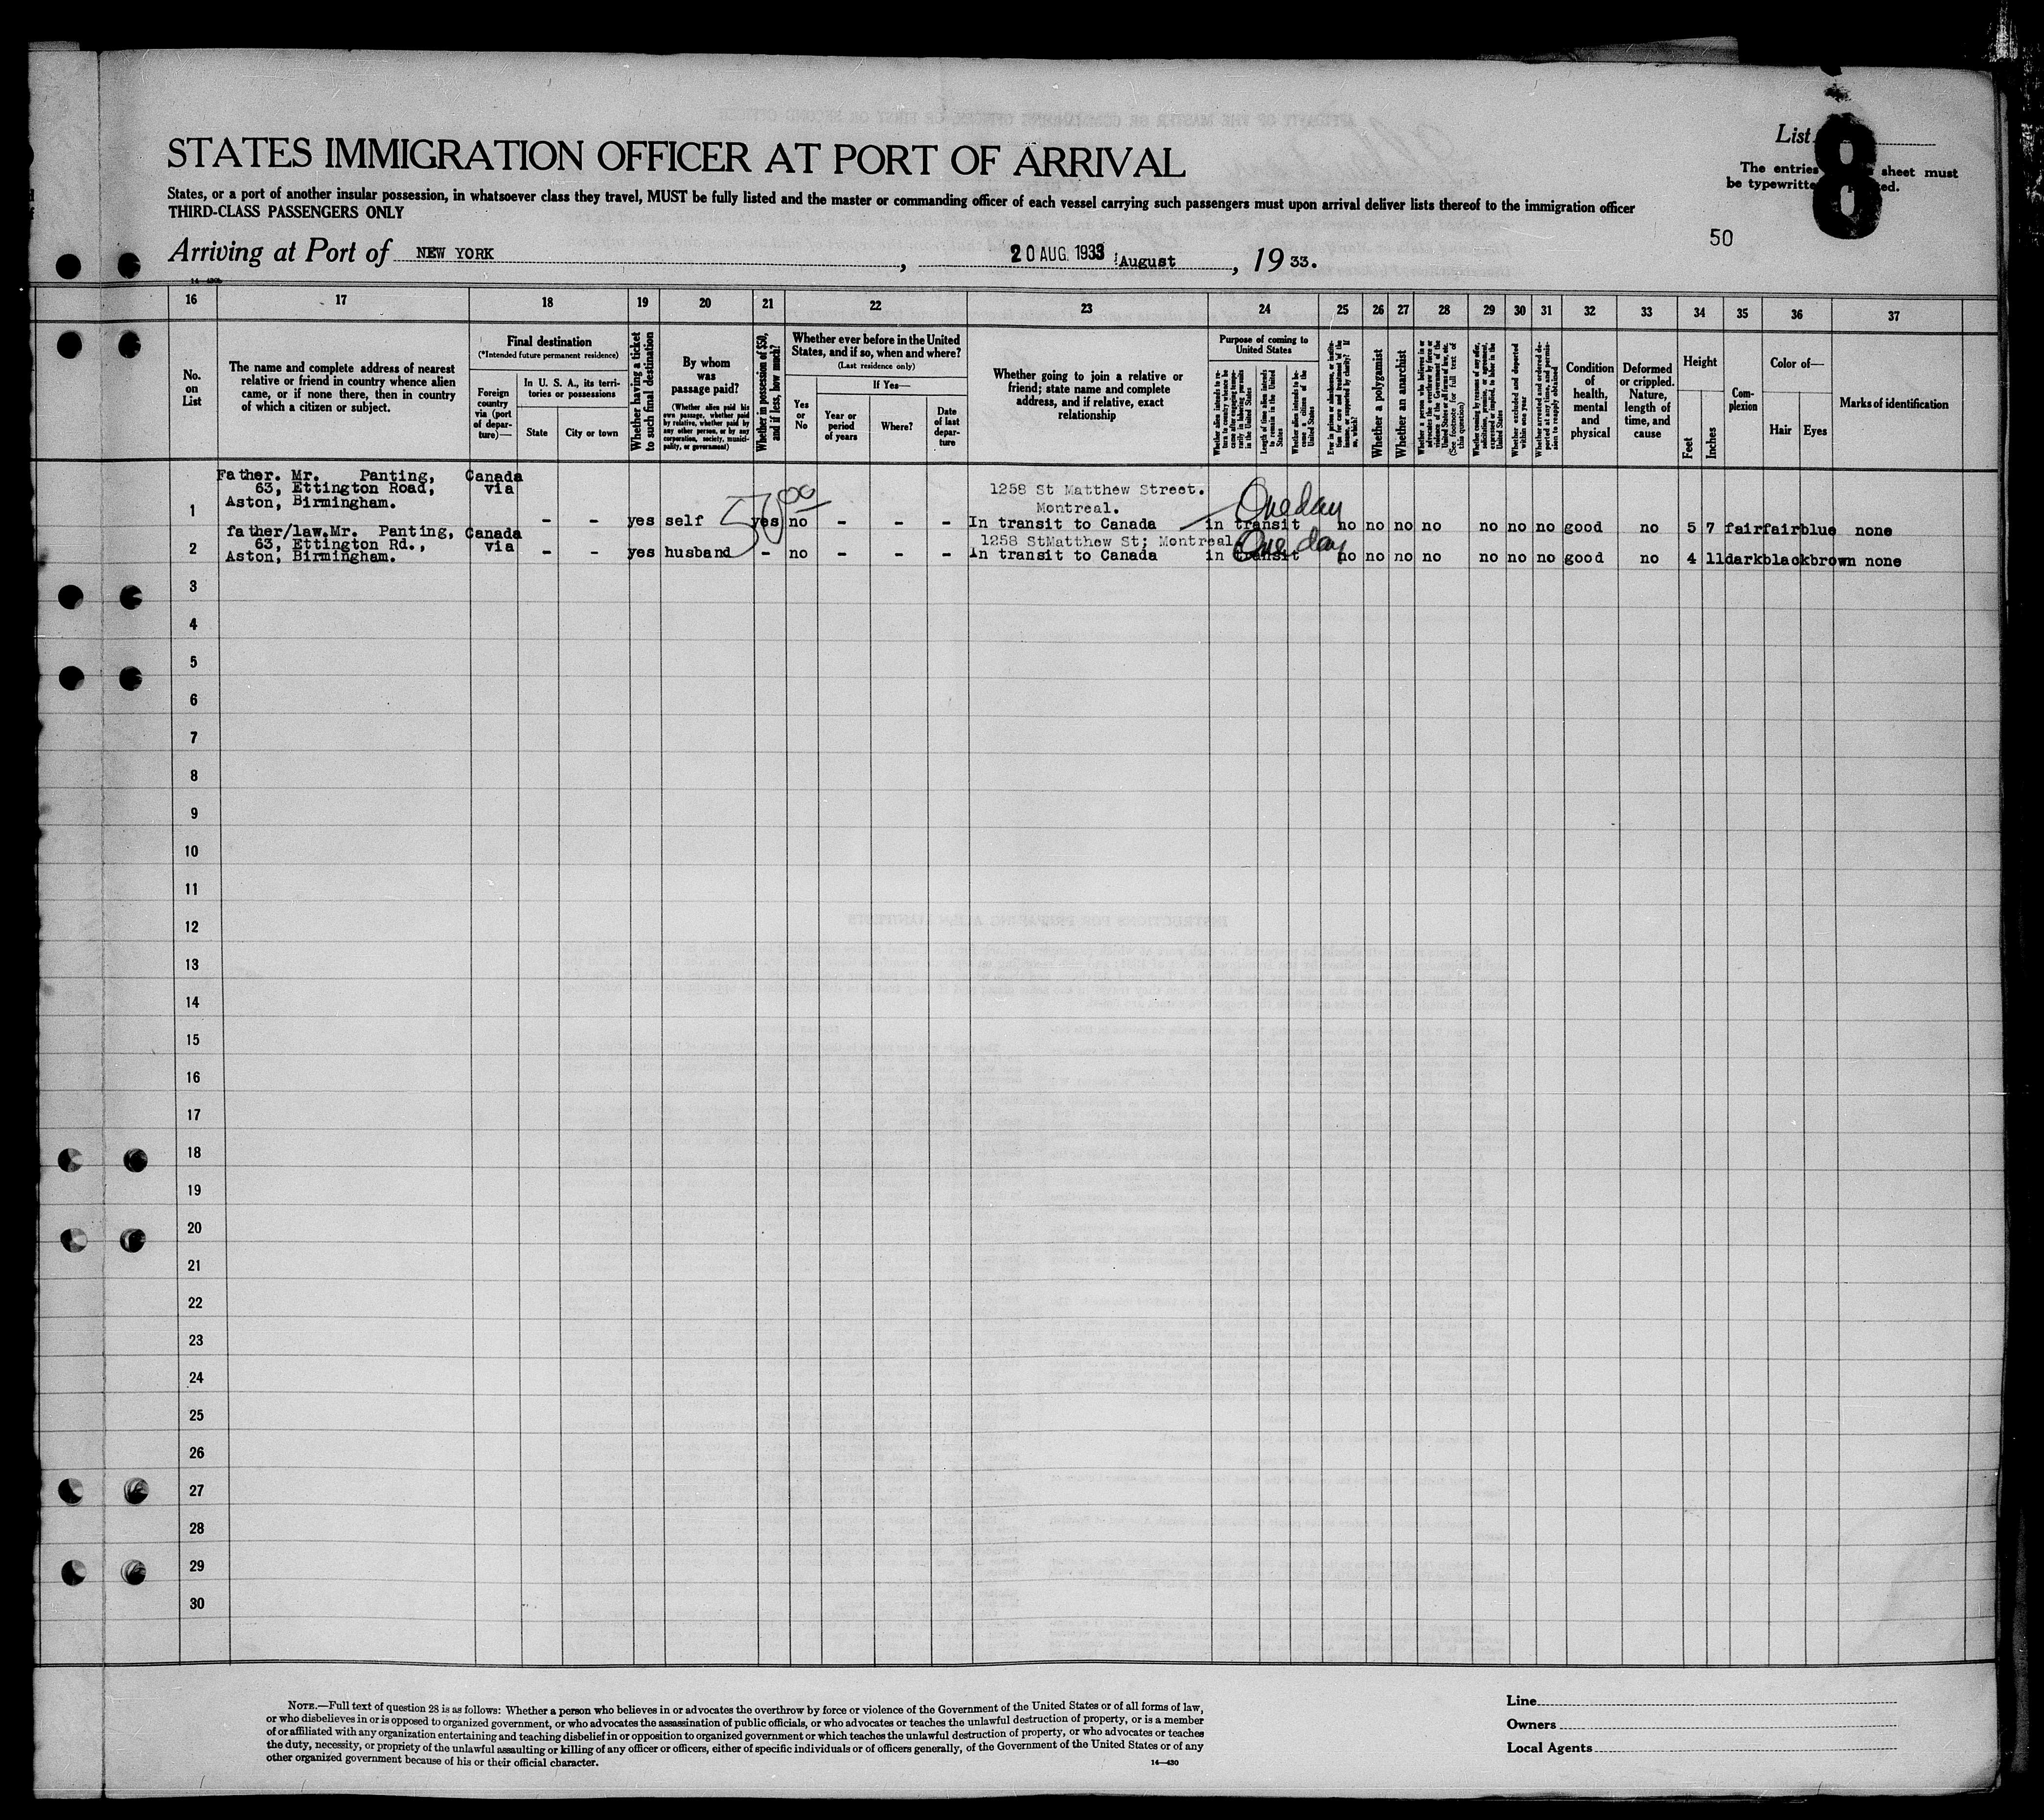 STATES IMMIGRATION OFFICER AT PORT OF ARRIVAL
States, or a port of another insular possession, in whatsoever class they travel, MUST be fully listed and the master or commanding officer of each vessel carrying such passengers must upon arrival deliver lists thereof to the immigration officer
THIRD-CLASS PASSENGERS ONLY
List 8
The entries sheet must
be typewritte
50
Arriving at Port of NEW YORK, 20 AUG. 1933 August, 19 33.
16 17 18 19 20 21 22 23 24 25 26 27 28 29 30 31 32 33 34 35 36 37
No. on List
The name and complete address of nearest relative or friend in country whence alien came, or if none there, then in country of which a citizen or subject.
Final destination
(*Intended future permanent residence)
Foreign country via (port of departure)—
In U. S. A., its territories or possessions
State
City or town
Whether having a ticket to such final destination
By whom was passage paid?
(Whether alien paid his own passage, whether paid by relative, whether paid by any other person, or by any corporation, society, municipality, or government)
Whether in possession of $50, and if less, how much?
Whether ever before in the United States, and if so, when and where?
(Last residence only)
Yes or No
If Yes—
Year or period of years
Where?
Date of last departure
Whether going to join a relative or friend; state name and complete address, and if relative, exact relationship
Purpose of coming to United States
Length of time alien intends to remain in the United States
Whether alien intends to become a citizen of the United States
Whether a polygamist
Whether an anarchist
Condition of health, mental and physical
Deformed or crippled. Nature, length of time, and cause
Height
Feet
Inches
Complexion
Color of—
Hair
Eyes
Marks of identification
1
Father. Mr. Panting,
63, Ettington Road,
Aston, Birmingham.
Canada via - - yes self yes 50 00 no - - -
1258 St Matthew Street.
Montreal.
In transit to Canada in transit One day no no no no no no no good no 5 7 fair fair blue none
2
father/law.Mr. Panting,
63, Ettington Rd.,
Aston, Birmingham.
Canada via - - yes husband - no - - -
1258 StMatthew St; Montreal
In transit to Canada in transit One day no no no no no no no good no 4 11 dark black brown none
3
4
5
6
7
8
9
10
11
12
13
14
15
16
17
18
19
20
21
22
23
24
25
26
27
28
29
30
NOTE.—Full text of question 28 is as follows: Whether a person who believes in or advocates the overthrow by force or violence of the Government of the United States or of all forms of law,
or who disbelieves in or is opposed to organized government, or who advocates the assassination of public officials, or who advocates or teaches the unlawful destruction of property, or is a member
of or affiliated with any organization entertaining and teaching disbelief in or opposition to organized government or which teaches the unlawful destruction of property, or who advocates or teaches
the duty, necessity, or propriety of the unlawful assaulting or killing of any officer or officers, either of specific individuals or of officers generally, of the Government of the United States or of any
other organized government because of his or their official character.
14—430
Line
Owners
Local Agents